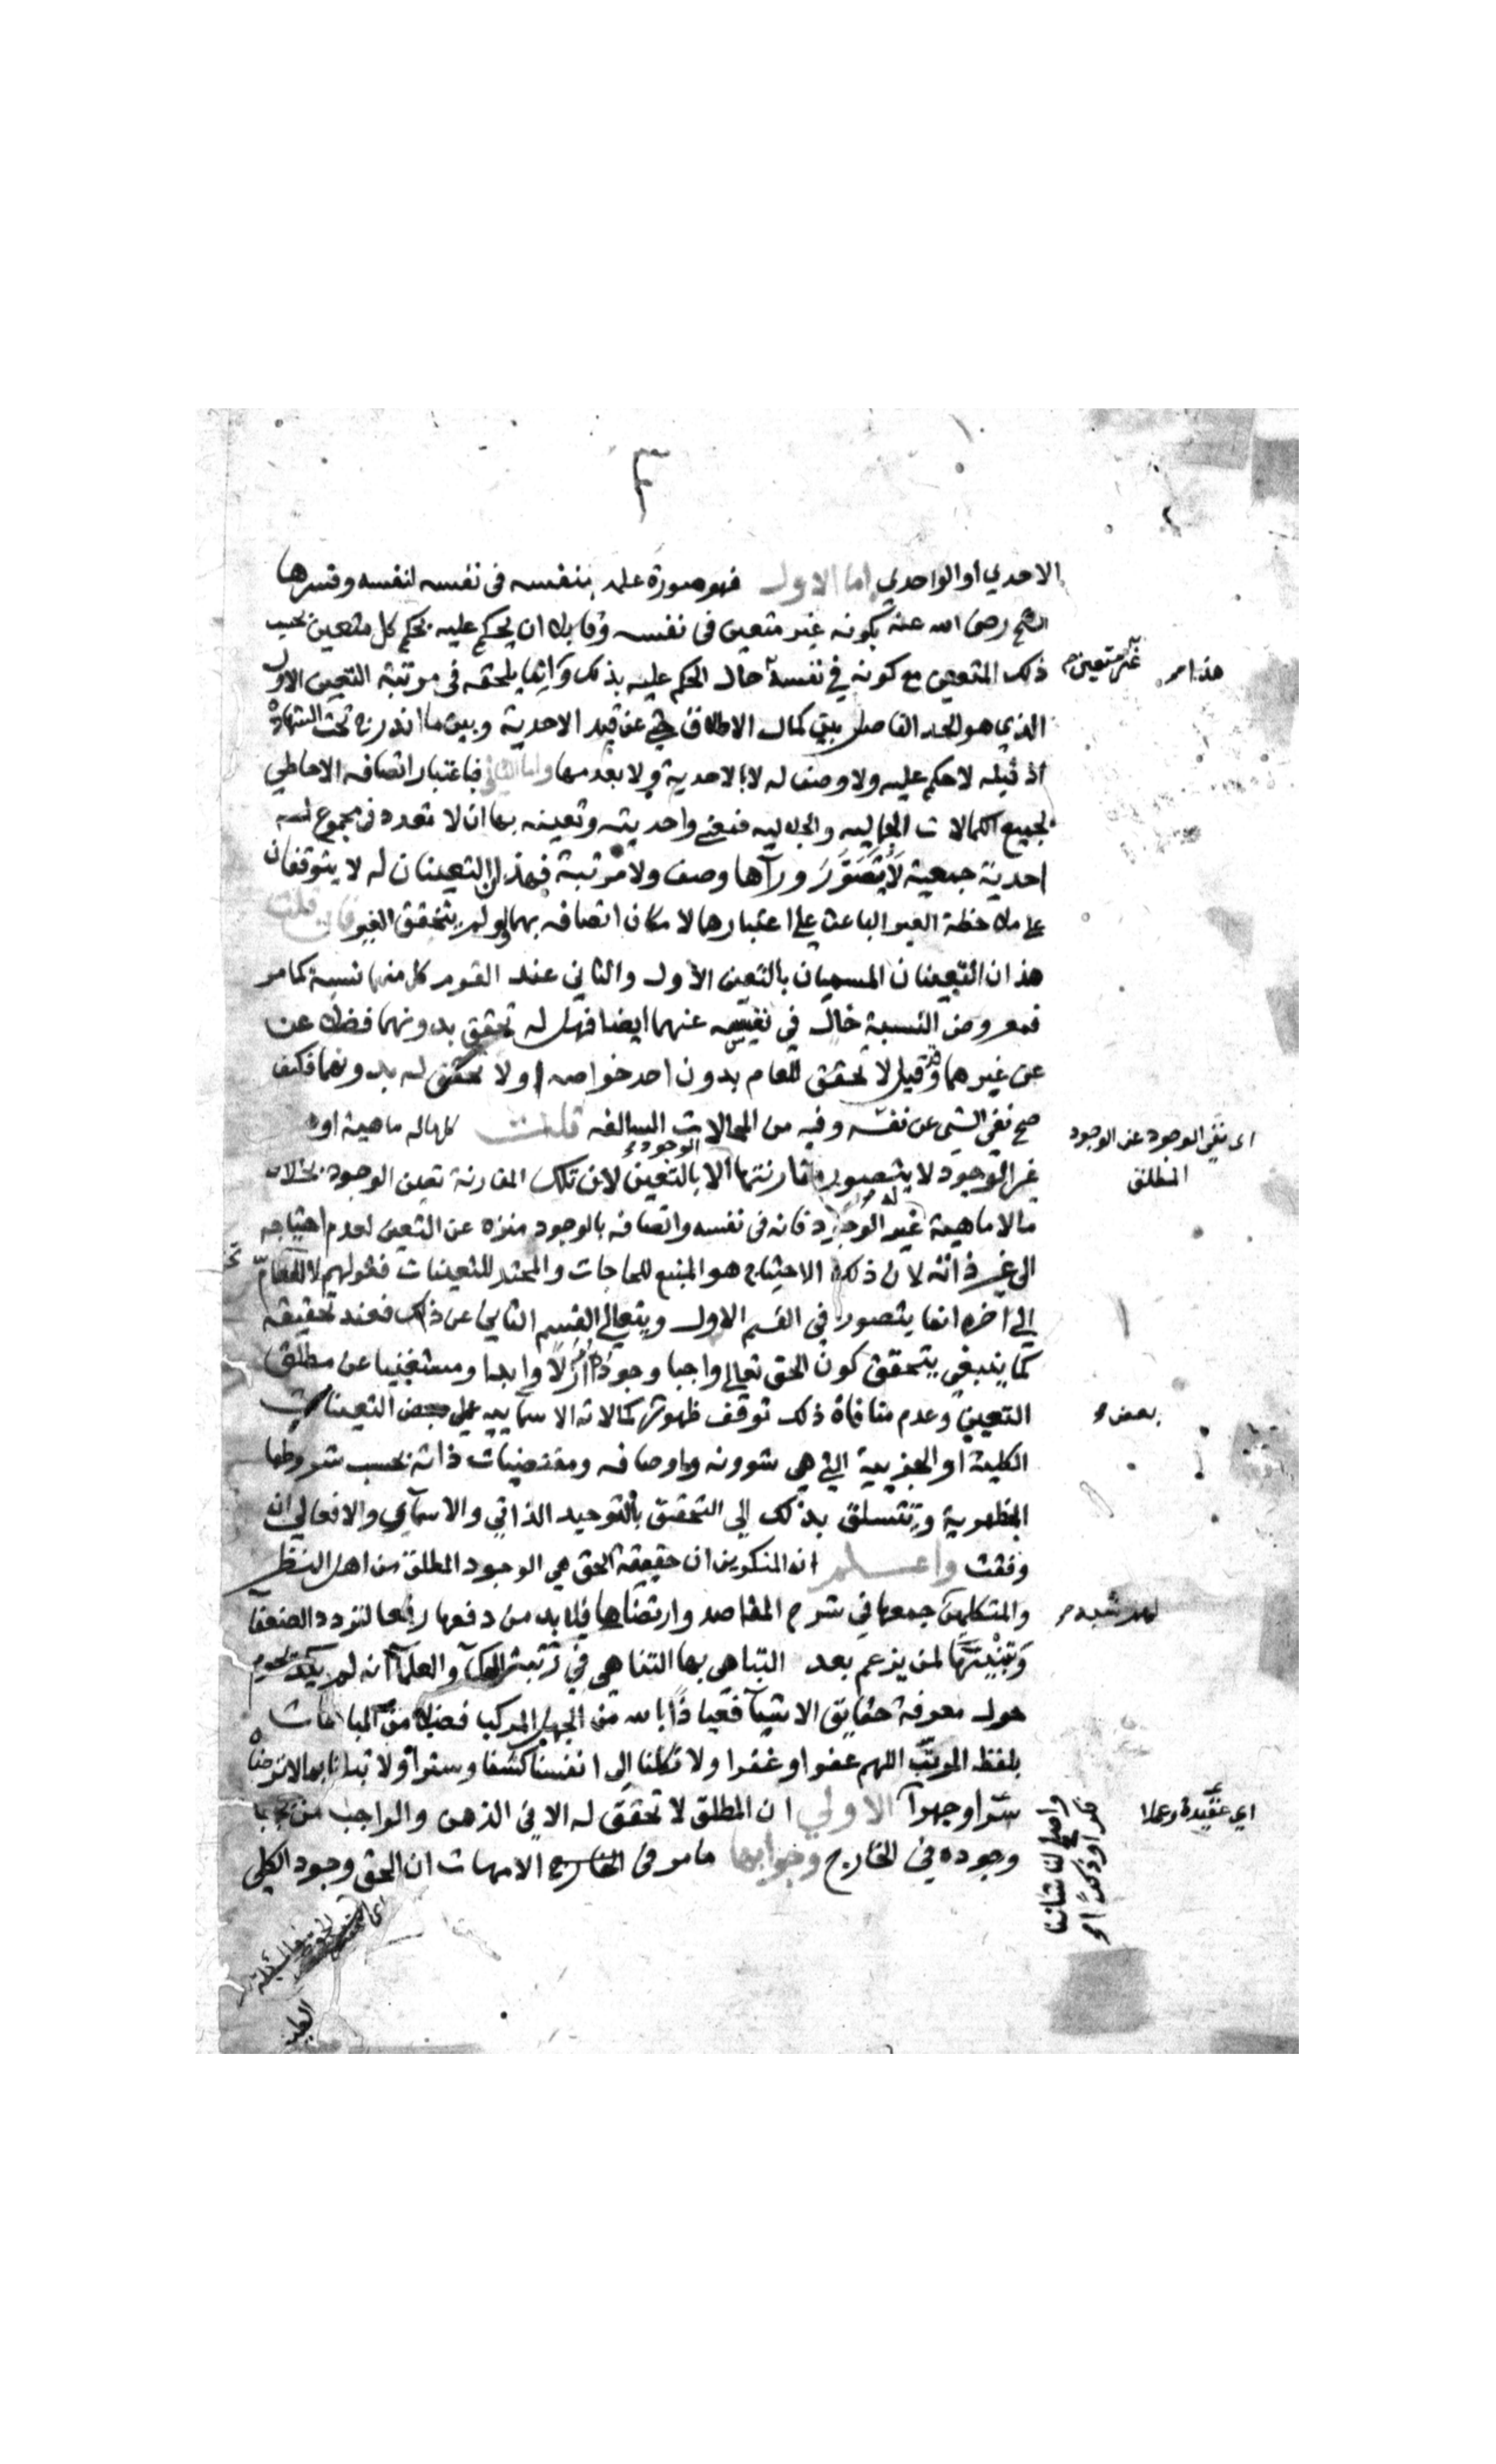 الاحدي او الواحدي اما الاول فهو صورة علمه بنفسه في نفسه لنفسه وفسرها
الشيخ رضى الله عنه بكونه غير متعين فى نفسه وقابلا ان يحكم عليه بحكم كل متعين بحسب
ذلك المتعين مع كونه في نفسه حال الحكم عليه بذلك وانما يلحقه فى مرتبة التعين الاول
غير متعين صح
هذا صح
الذي هو الحد الفاصل بين كمال الاطلاق حتى عن قيد الاحدية وبين ما اندرج تحت الشهادة
اذ قبله لا حكم عليه ولا وصف له لا بالاحدية ولا بعدمها واما الثاني فباعتبار اتصافه الاحاطي
لجميع الكمالات الجمالية والجلالية فمعنى واحديته وتعينه بها ان لا تعدد فى مجموع له
احدية جمعية لا يتصور ورآها وصف ولا مرتبة فهذان التعينان له لا يتوقفان
على ملاحظة الغير الباعث على اعتبارهما لامكان اتصافه بهما ولو لم يتحقق الغير فان قلت
هذان التعينان المسميان بالتعين الاول والثاني عند القوم كل منهما نسبة كما مر
فمعروض النسبة خال في نفسه عنهما ايضا فهل له تحقق بدونهما فضلا عن
عن غيرهما وقد قيل لا تحقق للعام بدون احد خواصه او لا تحقق له بدونهما فكيف
صح نفي الشي عن نفسه وفيه من المحالات السالفه قلت كلما له ماهية او
اى نفي الوجود عن الوجود
المطلق
غير الوجود لا يتصور مقارنتها الا بالتعين لان تلك المقارنة تعين الوجود بخلاف
الوجود
ما لا ماهية له غير الوجود فانه فى نفسه واتصافه بالوجود منزه عن التعين لعدم احتياجه
الى غير ذاته لان ذلك الاحتياج هو المنبع للحاجات والمحتد للتعينات فقولهم لا للعام
الي اخره انما يتصور في القسم الاول ويتعالى القسم الثاني عن ذلك فعند تحقيقه
كما ينبغي يتحقق كون الحق تعالى واجبا وجوده ازلا وابدا ومستغنيا عن مطلق
التعين وعدم منافاة ذلك توقف ظهور كمالاته الاسمايية على بعض التعينات
بعض صح
الكلية او الجزيية التي هي شوونه واوصافه ومقتضيات ذاته بحسب شروطها
المظهرية وتتسلق بذلك الى التحقق بالتوحيد الذاتي والاسمآي والافعالي ان
وفقت واعلم ان المنكرين ان حقيقة الحق هي الوجود المطلق من اهل النظر
والمتكلمين جمعها في شرح المقاصد وارتضاها فلا بد من دفعها رفعا لتردد الضعفا
لهم شبه صح
وتنبيها لمن يزعم بعد التباهي بها التناهي في رتبة الحكمآ والعلمآ انه لم يكد يحوم
حول معرفة حقايق الاشيآ فعياذا بالله من الجهل المركب فضلا من المباهات
بلفظ المركب اللهم عفوا وغفرا ولا تكلنا الى انفسنا كشفا وسترا ولا تبدلنا بما لا ترضاه
سرا وجهرا الاولي ان المطلق لا تحقق له الا في الذهن والواجب من يجب
اي عقيدة وعملا
واصلح لنا شاننا
وجوده في الخارج وجوابها ما مر فى الامهات ان الحق وجود الكلي